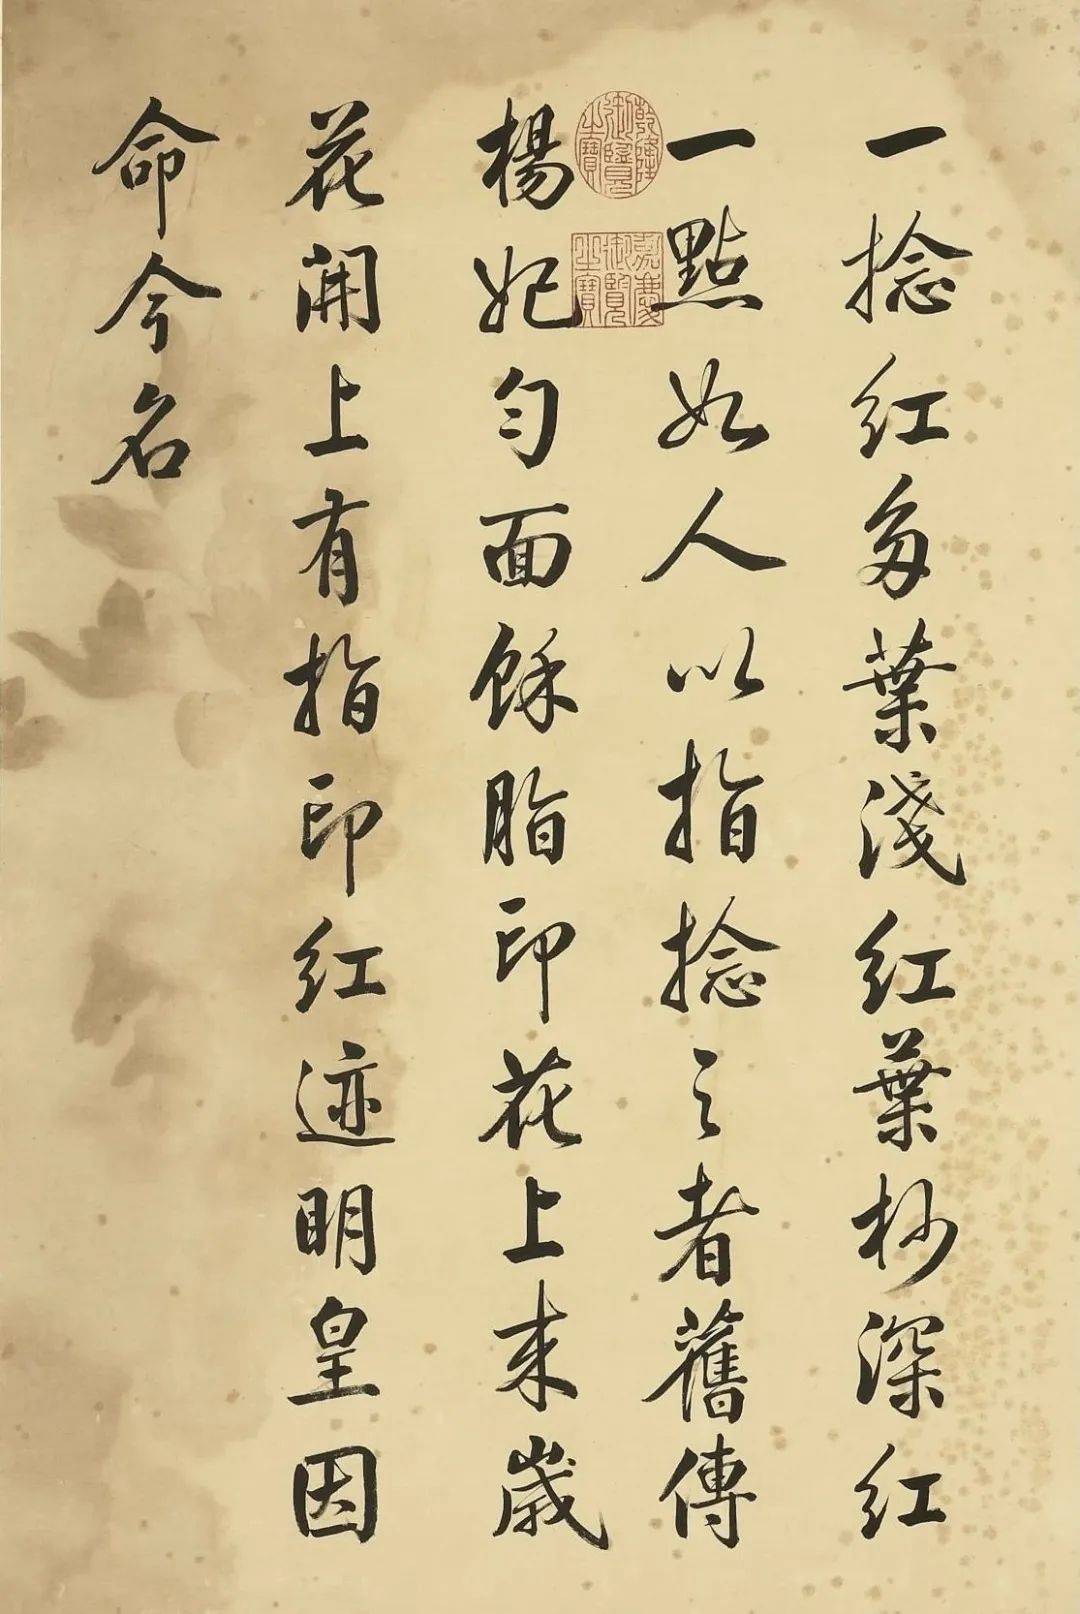 一捻红多葉淺红葉杪深红
一點如人以指捻之者舊傳
楊妃匀面餘脂印花上来歳
花開上有指印红迹明皇因
命今名
乾隆御覽之寶
嘉慶御覽之寶